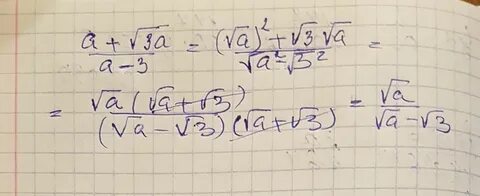 (a + √(3a))/(a − 3) = ((√a)² + √3 √a)/(√a² − √3²) =
= (√a (√a + √3))/((√a − √3)(√a + √3)) = √a/(√a − √3)